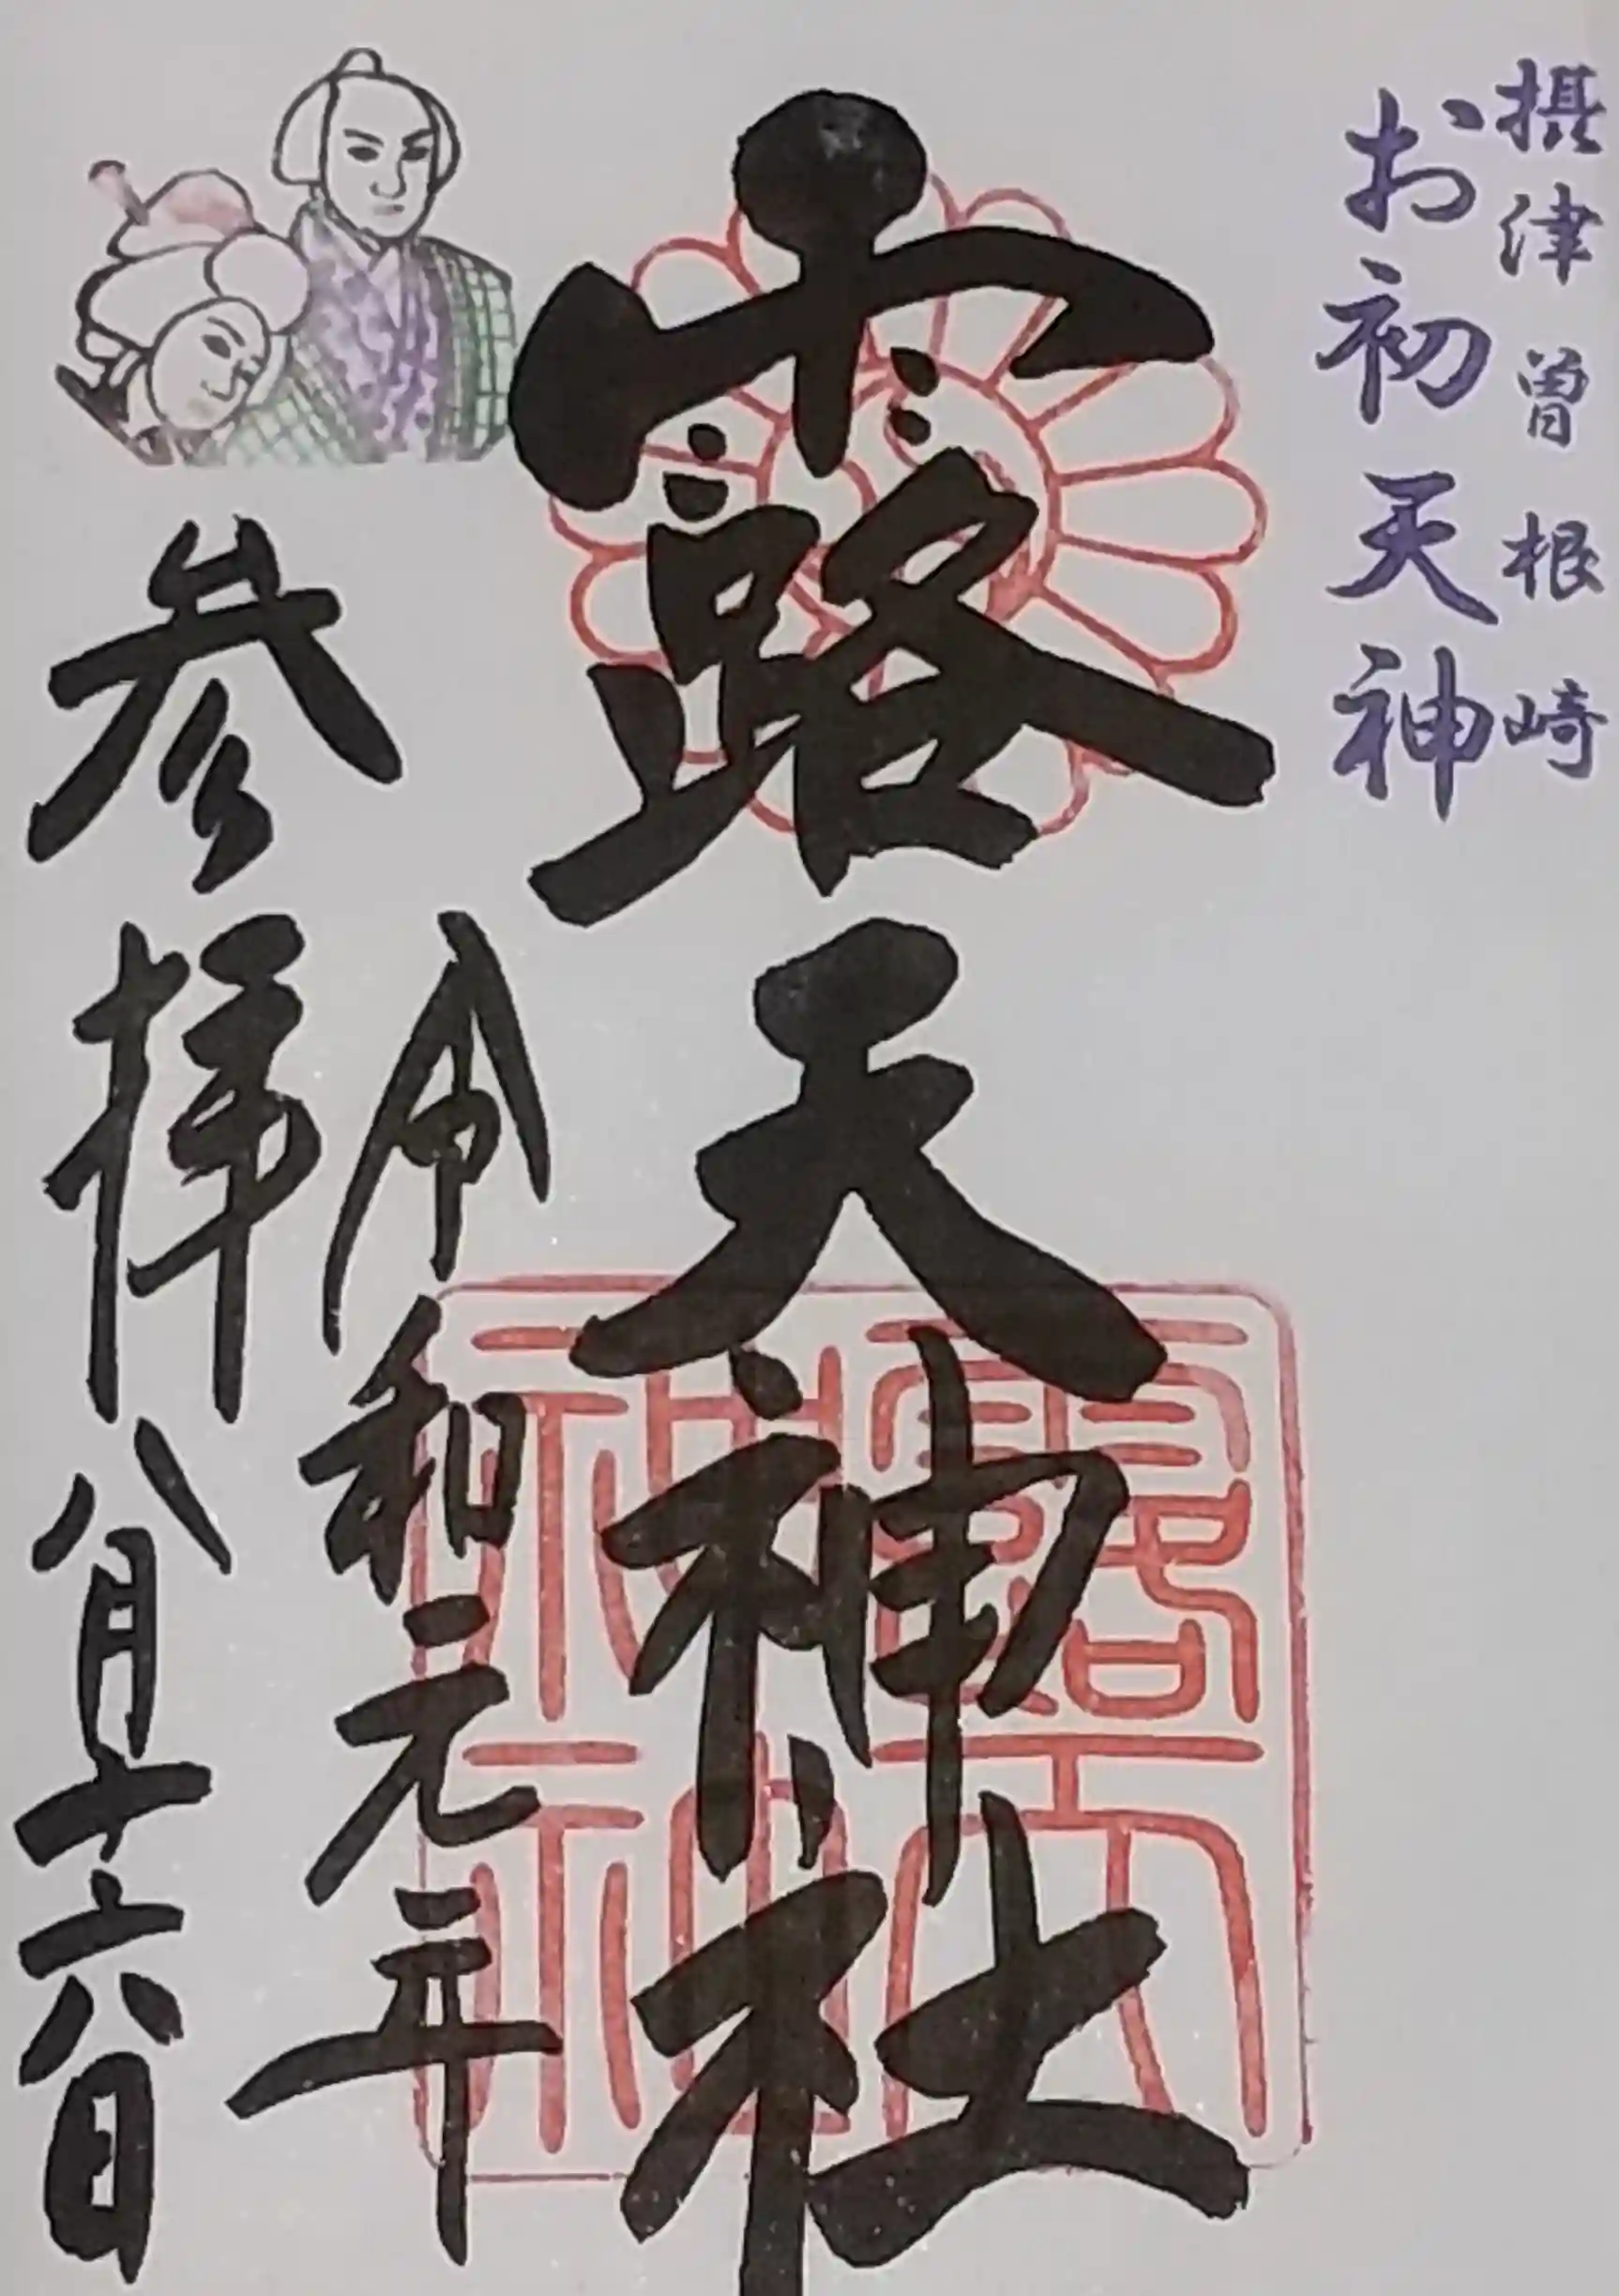 摂津曽根崎
お初天神
露天神社
令和元年
参拝
八月十六日